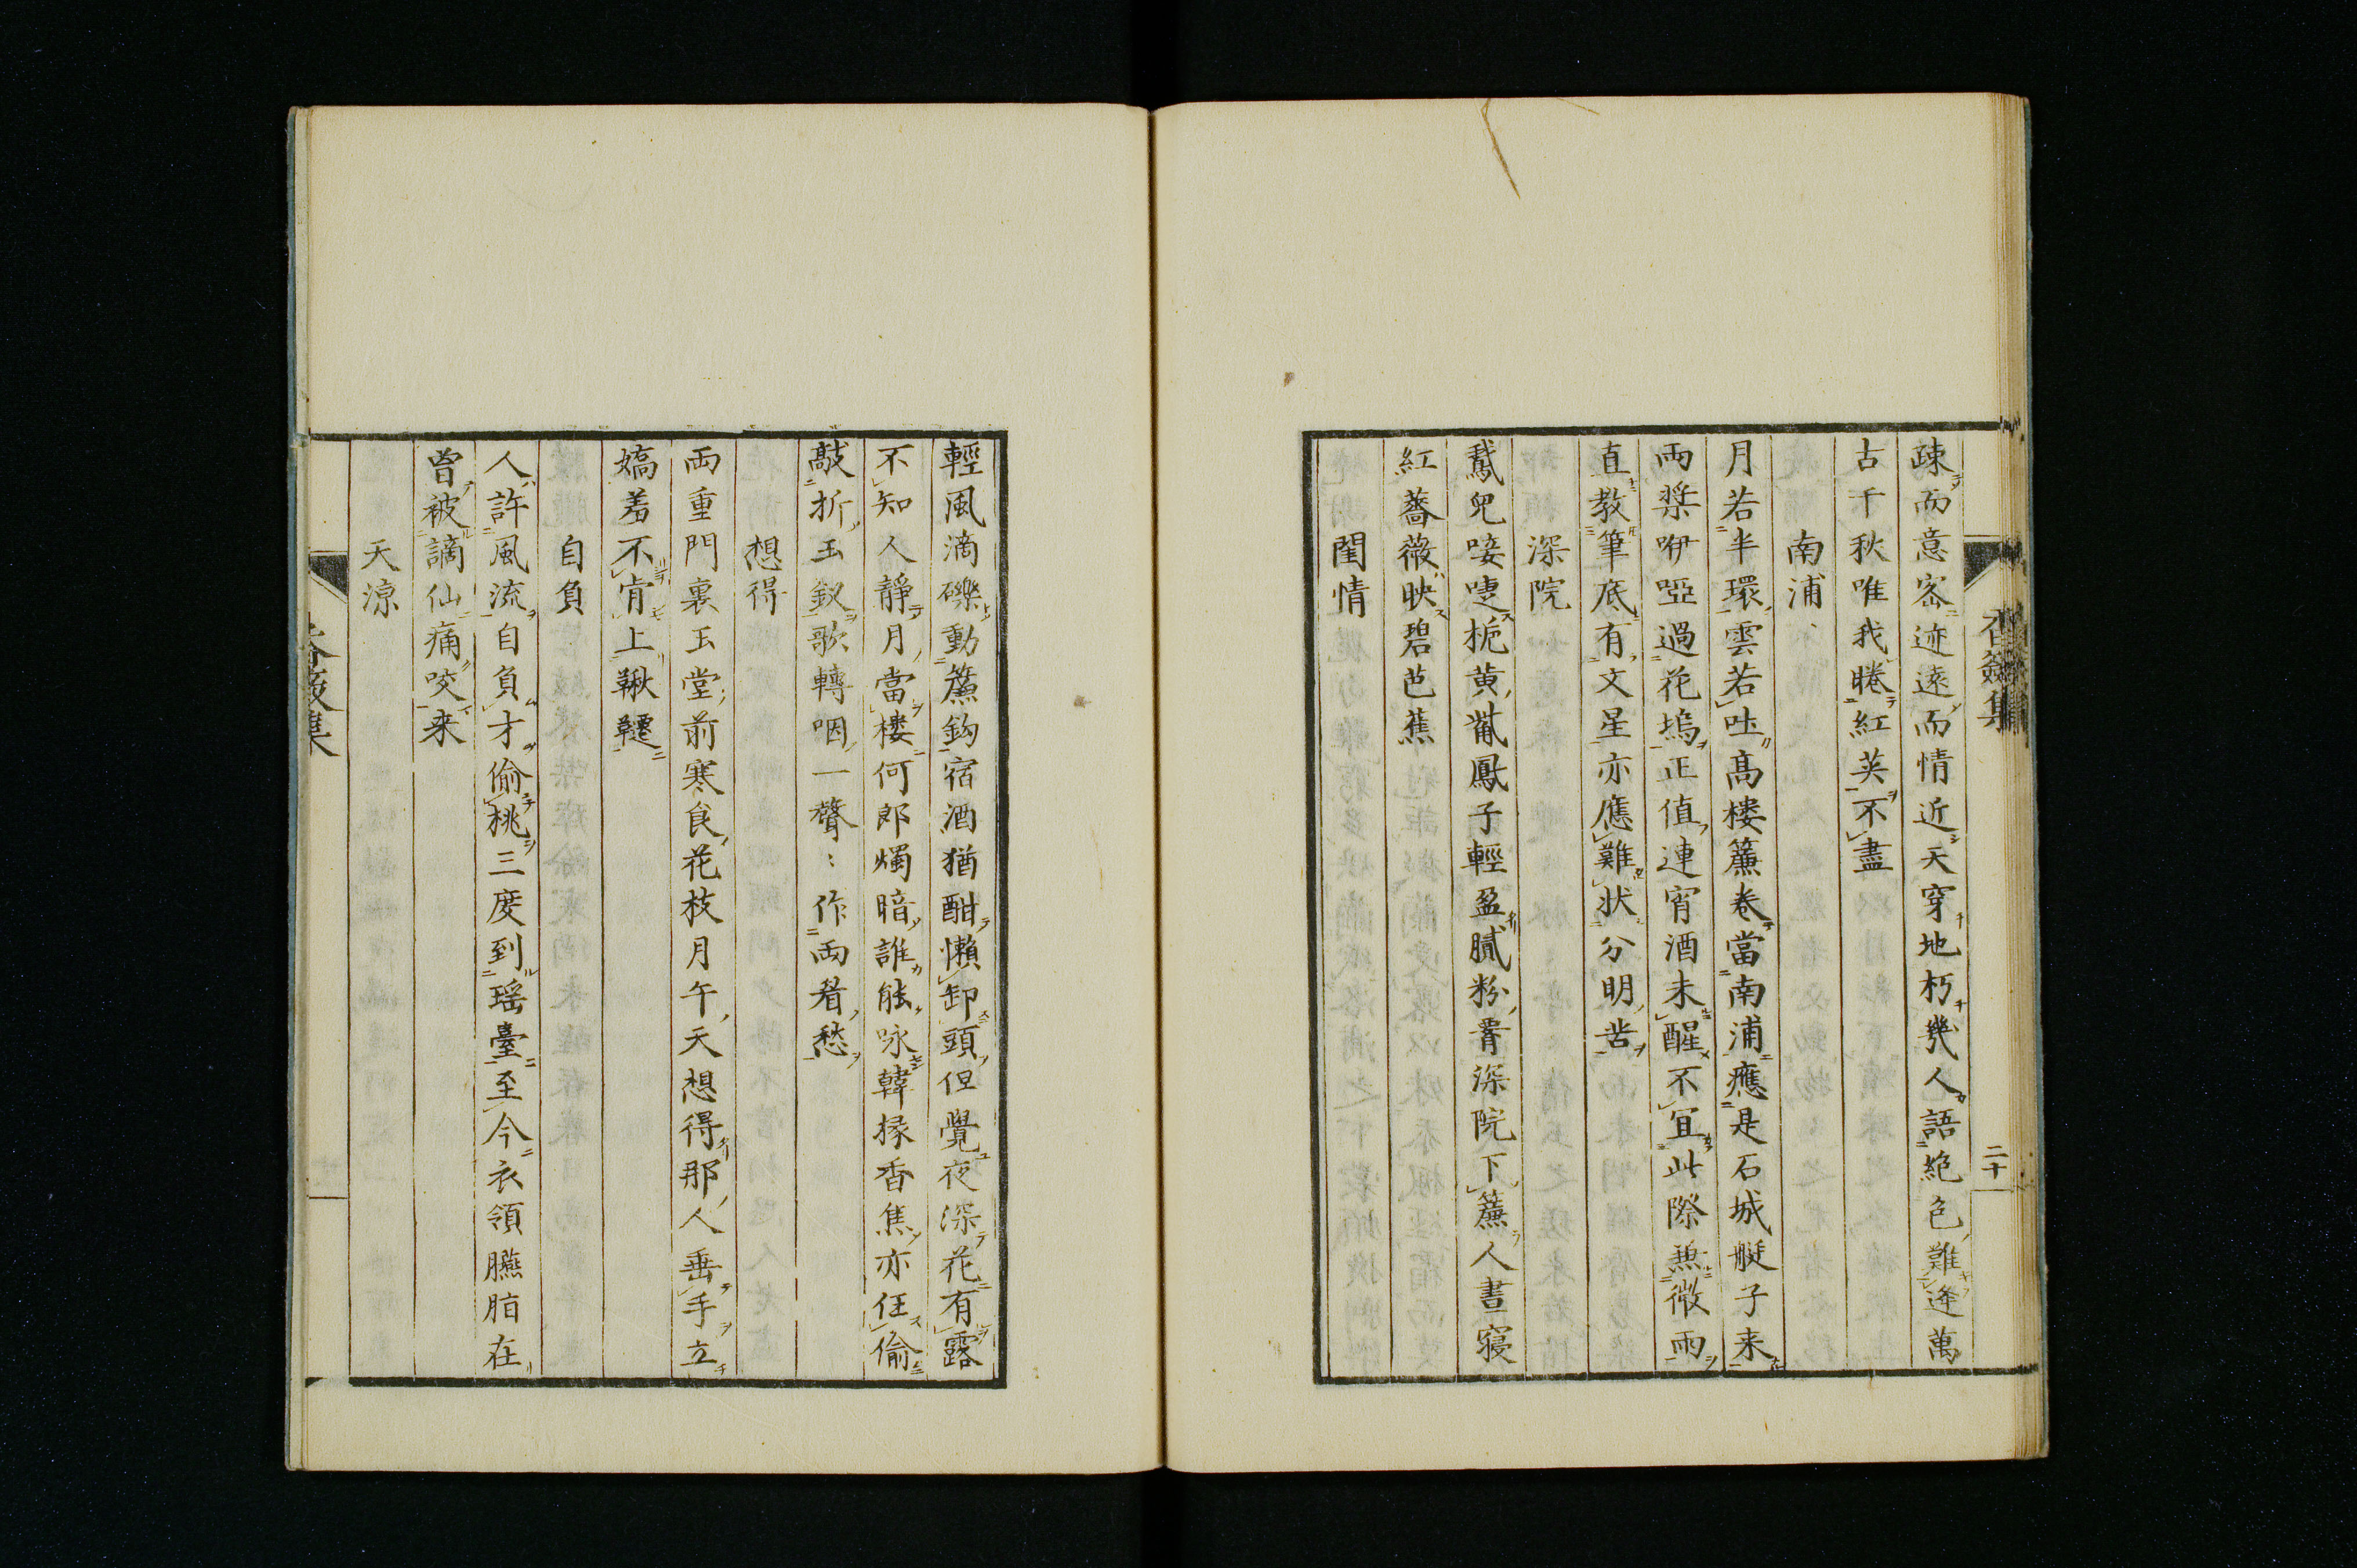 香奩集
二十
疎而意密迹遠而情近天穿地朽幾人語絶色難逢萬
古千秋唯我睠紅英不盡
南浦
月若半環雲若吐高楼簾卷當南浦應是石城艇子来
兩槳咿啞過花塢正值連宵酒未醒不宜此際無微雨
直教筆底有文星亦應難状分明苦
深院
鵞兒唼啑栀黄觜鳳子輕盈膩粉
深院下簾人晝寝
紅薔薇映碧芭蕉
閨情
輕風滴礫動簾鈎宿酒猶酣懶卸頭但覺夜深花有露
不知人靜月當樓何郎燭暗誰能咏韓掾香焦亦任偷
敲折玉釵歌轉咽一聲〻作兩眉愁
想得
兩重門裏玉堂前寒食花枝月午天想得那人垂手立
嬌羞不肯上鞦韆
自負
人許風流自負才偷桃三度到瑶臺至今衣領臙脂在
曾被謫仙痛咬来
天涼